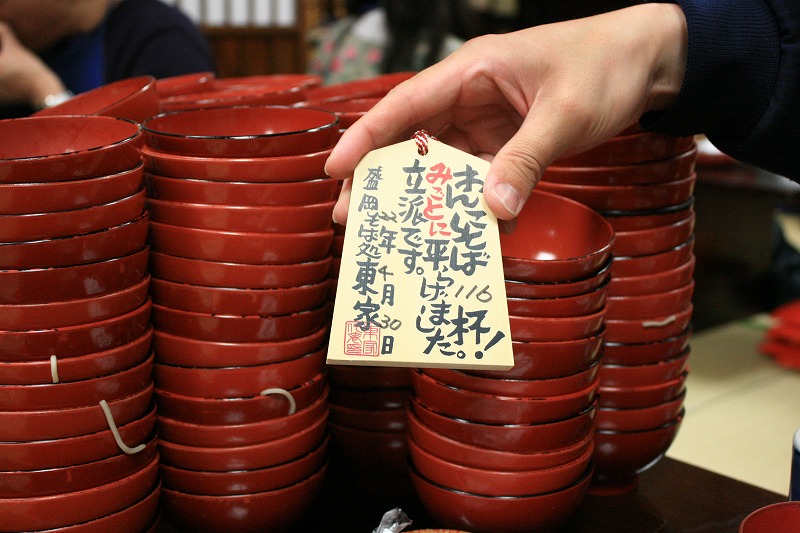 わんこそば116杯!
みごとに平らげました。
立派です。
22年4月30日
盛岡そば処東家